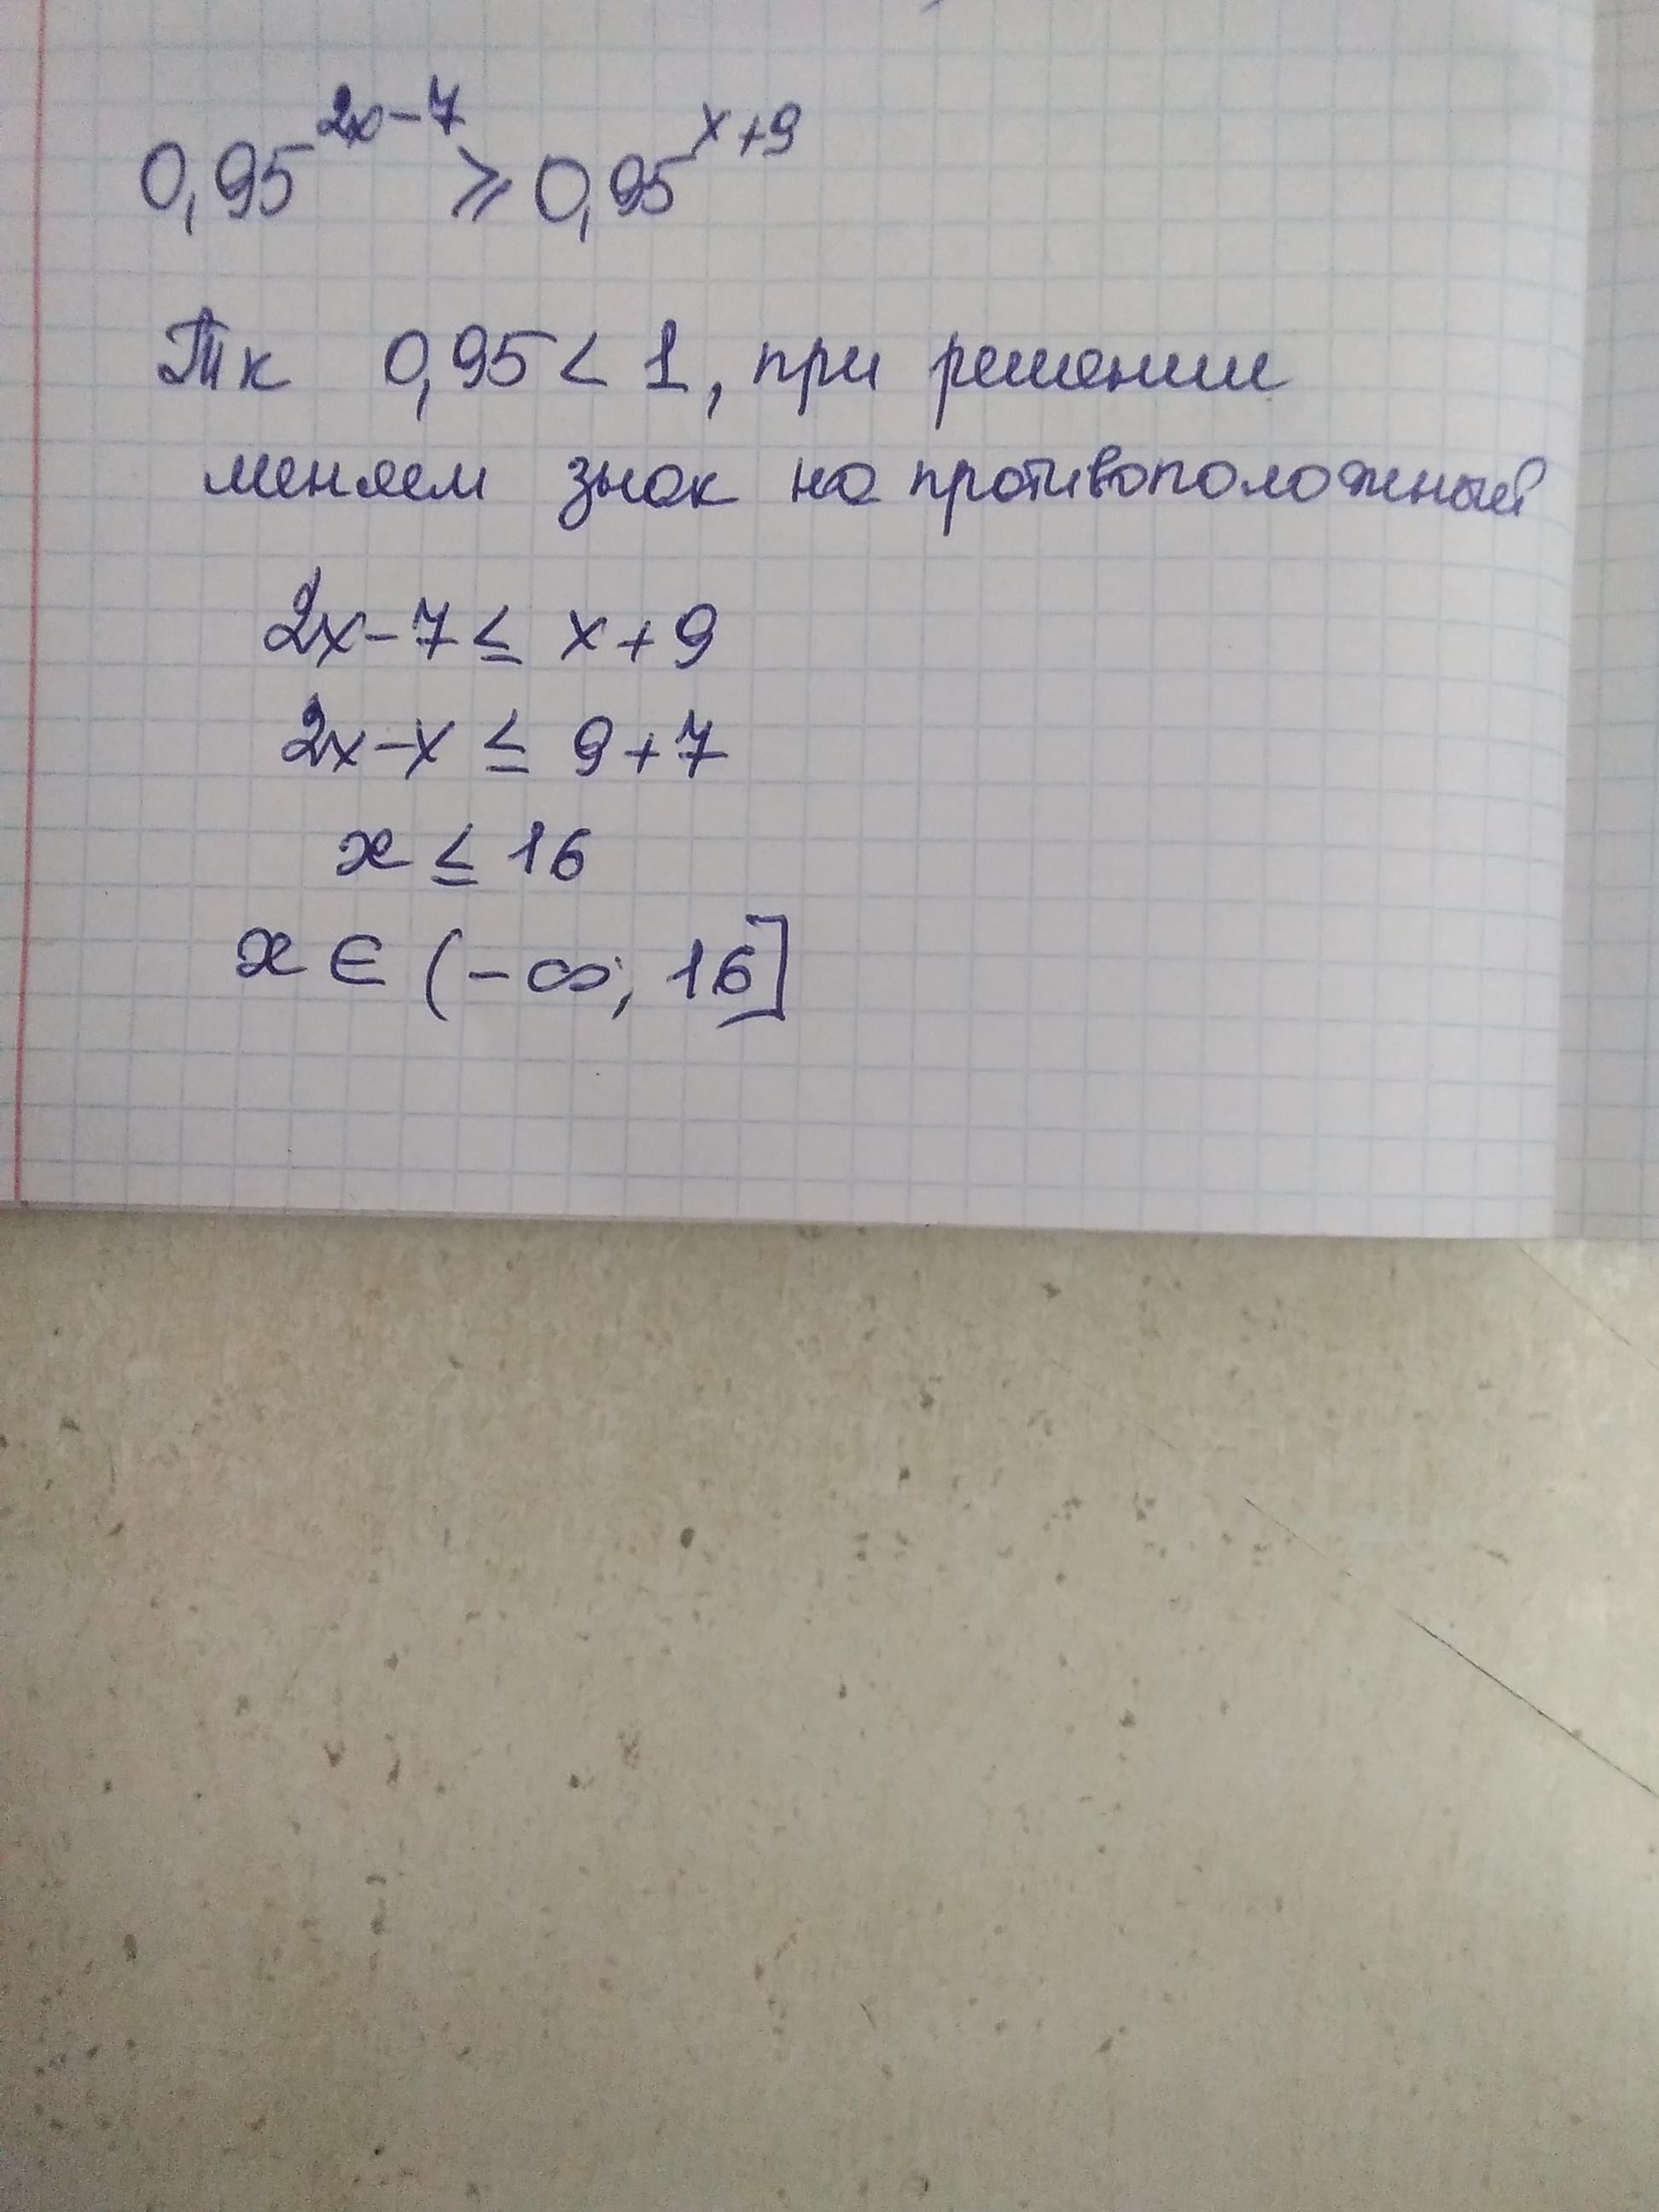 0,95^(2x-7) ⩾ 0,95^(x+9)
Тк 0,95 < 1, при решении
меняем знак на противоположный
2x-7 ≤ x+9
2x-x ≤ 9+7
x ≤ 16
x ∈ (-∞; 16]